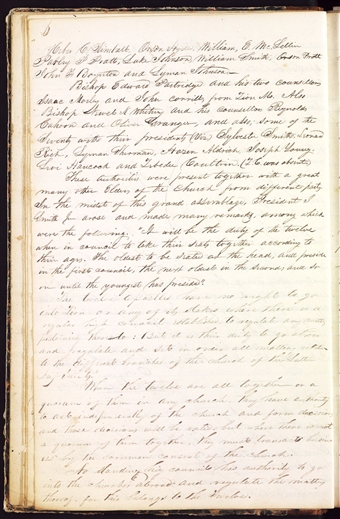 6
Heber C. Kimball, Orson Hyde, William E. McLellin
Parley P. Pratt, Luke Johnson William Smith, Orson Pratt
John F. Boynton and Lyman Johnson—
Bishop Edward Partridge and his two counsellors
Isaac Morley and John Corrill, from Zion Mo. Also
Bishop Newel K. Whitney and his counsellors Reynolds
Cahoon and Oliver Granger, and also, some of the
Seventy with their presidents (Viz) Sylvester Smith Leonard
Rich, Lyman Sherman, Hazen Aldrich Joseph Young.
Levi Hancock and Zebedee Coultrin (Z. C. was absent)
These authorities were present together with a great
many other Elders of the church from different parts
In the midst of this grand assemblage, President J
Smith Jr arose and made many remarks, among which
were the following. "It will be the duty of the twelve
when in council to take their seats together according to
their ages. The oldest to be seated at the head, and preside
in the first council, the next oldest in the second, and so
on until the youngest has presided."
have no right to go
into Zion or any of its stakes where there is a
regular high council established, to regulate any matter
pertaining thereto: But it is their duty to go abroad
and regulate and set in order all matters relative
to the different branches of the church of the Latter
day Saints.
When the twelve are all together or a
quorum of them in any church, they have authority
to act independently of the church and form decisions
and those decisions will be valid, but where there is not
a quorum of them together, they must transact business
by the common consent of the Church.
No standing high council has authority to go
into the churches abroad and regulate the matters
thereof, for this belongs to the Twelve.